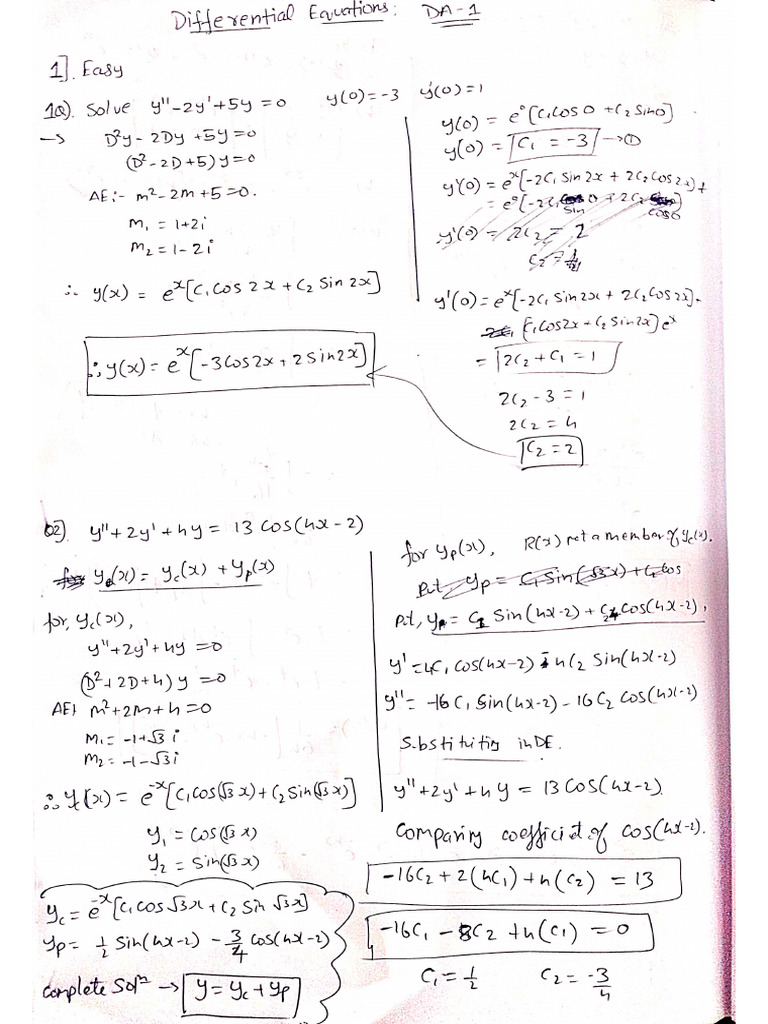 Differential Equations: DA-1
1]. Easy
1Q). Solve y''-2y'+5y=0 y(0)=-3 y'(0)=1
→ D²y - 2Dy +5y=0
(D²-2D+5)y=0
AE:- m²-2m+5=0.
m₁ = 1+2i
m₂ = 1-2i
∴ y(x) = eˣ[C₁cos 2x + C₂ Sin 2x]
∴ y(x) = eˣ[-3cos2x + 2sin2x]
y(0) = e⁰[C₁cos0 + C₂ Sin0]
y(0) = C₁ = -3 → ①
y'(0) = eˣ[-2C₁ Sin 2x + 2C₂ Cos 2x] +
= e⁰[-2C₁ Sin 0 + 2C₂ cos0]
y'(0) = 2C₂ = 2
y'(0) = eˣ[-2C₁ Sin 2x + 2C₂ Cos 2x] +
[C₁cos2x + C₂ Sin2x]eˣ
= 2C₂ + C₁ = 1
2C₂ - 3 = 1
2C₂ = 4
C₂ = 2
Q2]. y''+2y'+4y = 13 cos(4x-2)
y(x) = yc(x) + yp(x)
for, yc(x),
y''+2y'+4y =0
(D²+2D+4)y =0
AE) m²+2m+4=0
m₁ = -1+√3 i
m₂ = -1-√3 i
∴ yc(x) = e⁻ˣ[C₁cos(√3 x) + C₂ Sin(√3 x)]
y₁ = Cos(√3 x)
y₂ = Sin(√3 x)
yc = e⁻ˣ[C₁cos √3x + C₂ Sin √3x]
yp = 1/2 Sin(4x-2) - 3/4 cos(4x-2)
complete Solⁿ → y = yc + yp
for yp(x), R(x) not a member of yc(x).
Put yp = C₁ Sin(√3 x) + C₂ cos
Put, yp = C₁ Sin(4x-2) + C₂ cos(4x-2),
y' = 4C₁ cos(4x-2) - 4C₂ Sin(4x-2)
y'' = -16C₁ Sin(4x-2) - 16C₂ Cos(4x-2)
Substituting in DE.
y''+2y'+4y = 13 cos(4x-2).
Comparing coefficient of cos(4x-2).
-16C₂ + 2(4C₁) + 4(C₂) = 13
-16C₁ - 8C₂ + 4(C₁) = 0
C₁ = 1/2 C₂ = -3/4